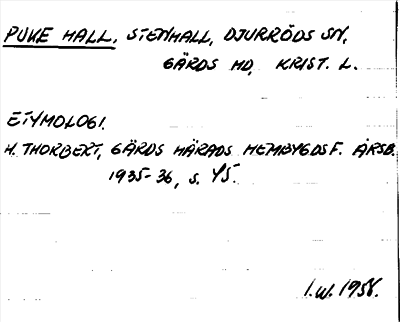 PUKE HALL, STENHALL, DJURRÖDS SN,
GÄRDS HD, KRIST. L.
ETYMOLOGI.
H. THORBERT, GÄRDS HÄRADS HEMBYGDSF. ÅRSB.
1935-36, S. 45.
I.W. 1958.